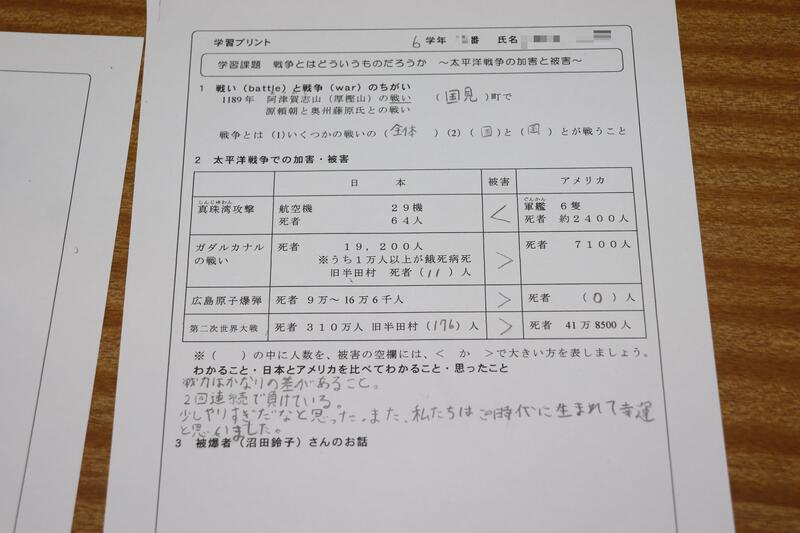 学習プリント 6 学年 番 氏名
学習課題 戦争とはどういうものだろうか ～太平洋戦争の加害と被害～
1 戦い（battle）と戦争（war）のちがい
1189年 阿津賀志山（厚樫山）の戦い （国見）町で
源頼朝と奥州藤原氏との戦い
戦争とは（1）いくつかの戦いの（全体）（2）（国）と（国）とが戦うこと
2 太平洋戦争での加害・被害
日本 被害 アメリカ
しんじゅわん ぐんかん
真珠湾攻撃 航空機 29機 < 軍艦 6隻
死者 64人 死者 約2400人
ガダルカナル 死者 19，200人 > 死者 7100人
の戦い ※うち1万人以上が餓死病死
旧半田村 死者（11）人
広島原子爆弾 死者 9万～16万6千人 > 死者 （0）人
第二次世界大戦 死者 310万人 旧半田村（176）人 > 死者 41万8500人
※（ ）の中に人数を、被害の空欄には、< か >で大きい方を表しましょう。
わかること・日本とアメリカを比べてわかること・思ったこと
戦力はかなりの差があること。
2回連続で負けている。
少しやりすぎだなと思った。また、私たちはこの時代に生まれて幸運
と思いました。
3 被爆者（沼田鈴子）さんのお話